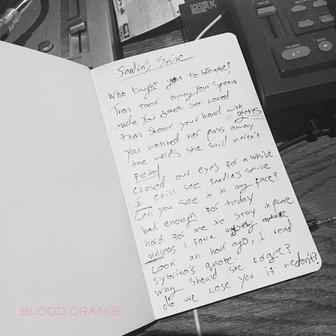 Sandra's Smile
Who taught you to breathe?
Then took away your speech
made you look so loved
then shook your hand with gloves
You watched her pass away
the words she said weren't
feind
closed our eyes for a while
I still see Sandra's smile
Can you see it in my face?
had enough for today
hard for me to stay in place
unless I face outside
Look an hour ago, I read
Sybrina's quote,
Why should she forgive?
do we lose you if we don't?
BLOOD ORANGE